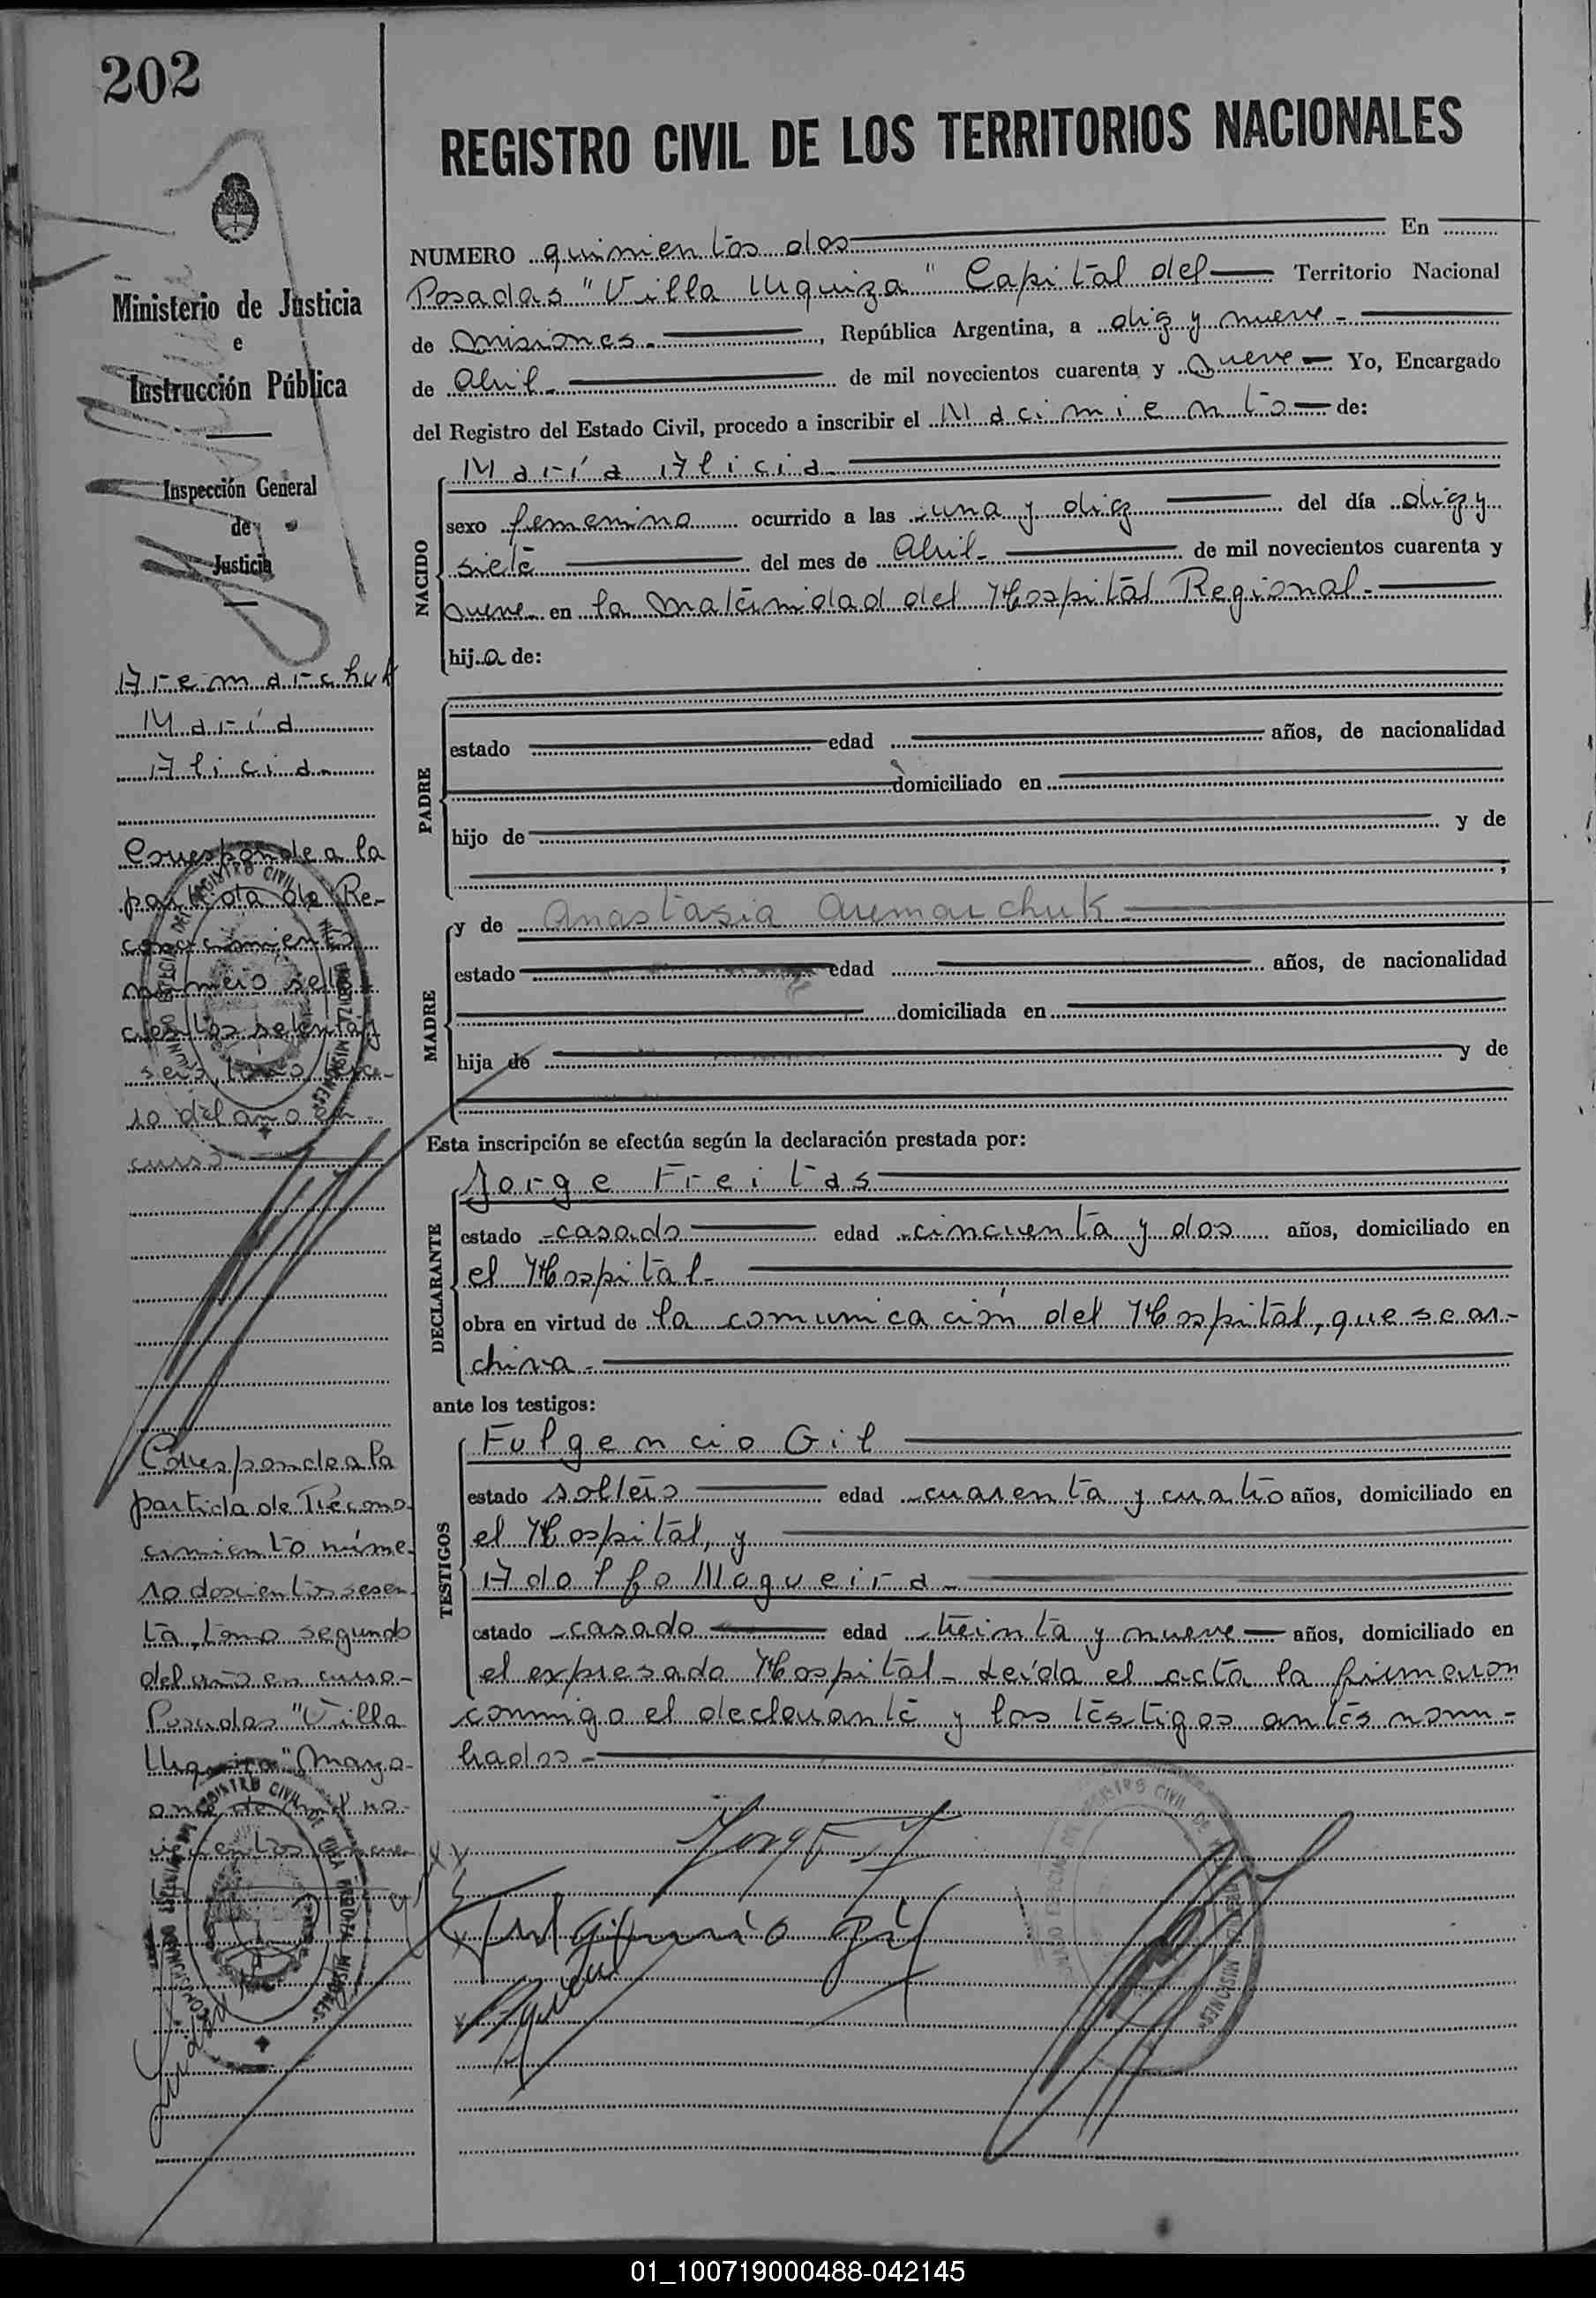 202
REGISTRO CIVIL DE LOS TERRITORIOS NACIONALES
Ministerio de Justicia
e
Instrucción Pública
Inspección General
de
Justicia
Aremarchuk
María
Alicia
Corresponde a la
partida de Re-
conocimiento
número sete
cientos setenta y
seis, tomo
ro del año en
curso
Corresponde a la
partida de Recono-
cimiento núme-
ro doscientos sesen-
ta, tomo segundo
del año en curso-
Posadas "Villa
Urquiza" Mayo-
once de mil no-
vecientos cincuen
NUMERO quinientos dos En
Posadas "Villa Urquiza" Capital del Territorio Nacional
de Misiones.- , República Argentina, a diez y nueve-
de Abril- de mil novecientos cuarenta y nueve- Yo, Encargado
del Registro del Estado Civil, procedo a inscribir el Nacimiento de:
NACIDO
María Alicia.-
sexo femenino ocurrido a las una y diez del día diez y
siete del mes de Abril- de mil novecientos cuarenta y
nueve en la Maternidad del Hospital Regional.-
hija de:
PADRE
estado edad años, de nacionalidad
domiciliado en
hijo de y de
;
MADRE
y de Anastasia Aremarchuk
estado edad años, de nacionalidad
domiciliada en
hija de y de
Esta inscripción se efectúa según la declaración prestada por:
DECLARANTE
Jorge Freitas
estado casado edad cincuenta y dos años, domiciliado en
el Hospital-
obra en virtud de la comunicación del Hospital, que se ar-
chiva.-
ante los testigos:
TESTIGOS
Fulgencio Gil
estado soltero edad cuarenta y cuatro años, domiciliado en
el Hospital, y
Adolfo Nogueira-
estado casado edad treinta y nueve años, domiciliado en
el expresado Hospital- Leída el acta la firmaron
conmigo el declarante y los testigos antes nom-
brados-
Fulgencio Gil
01_100719000488-042145